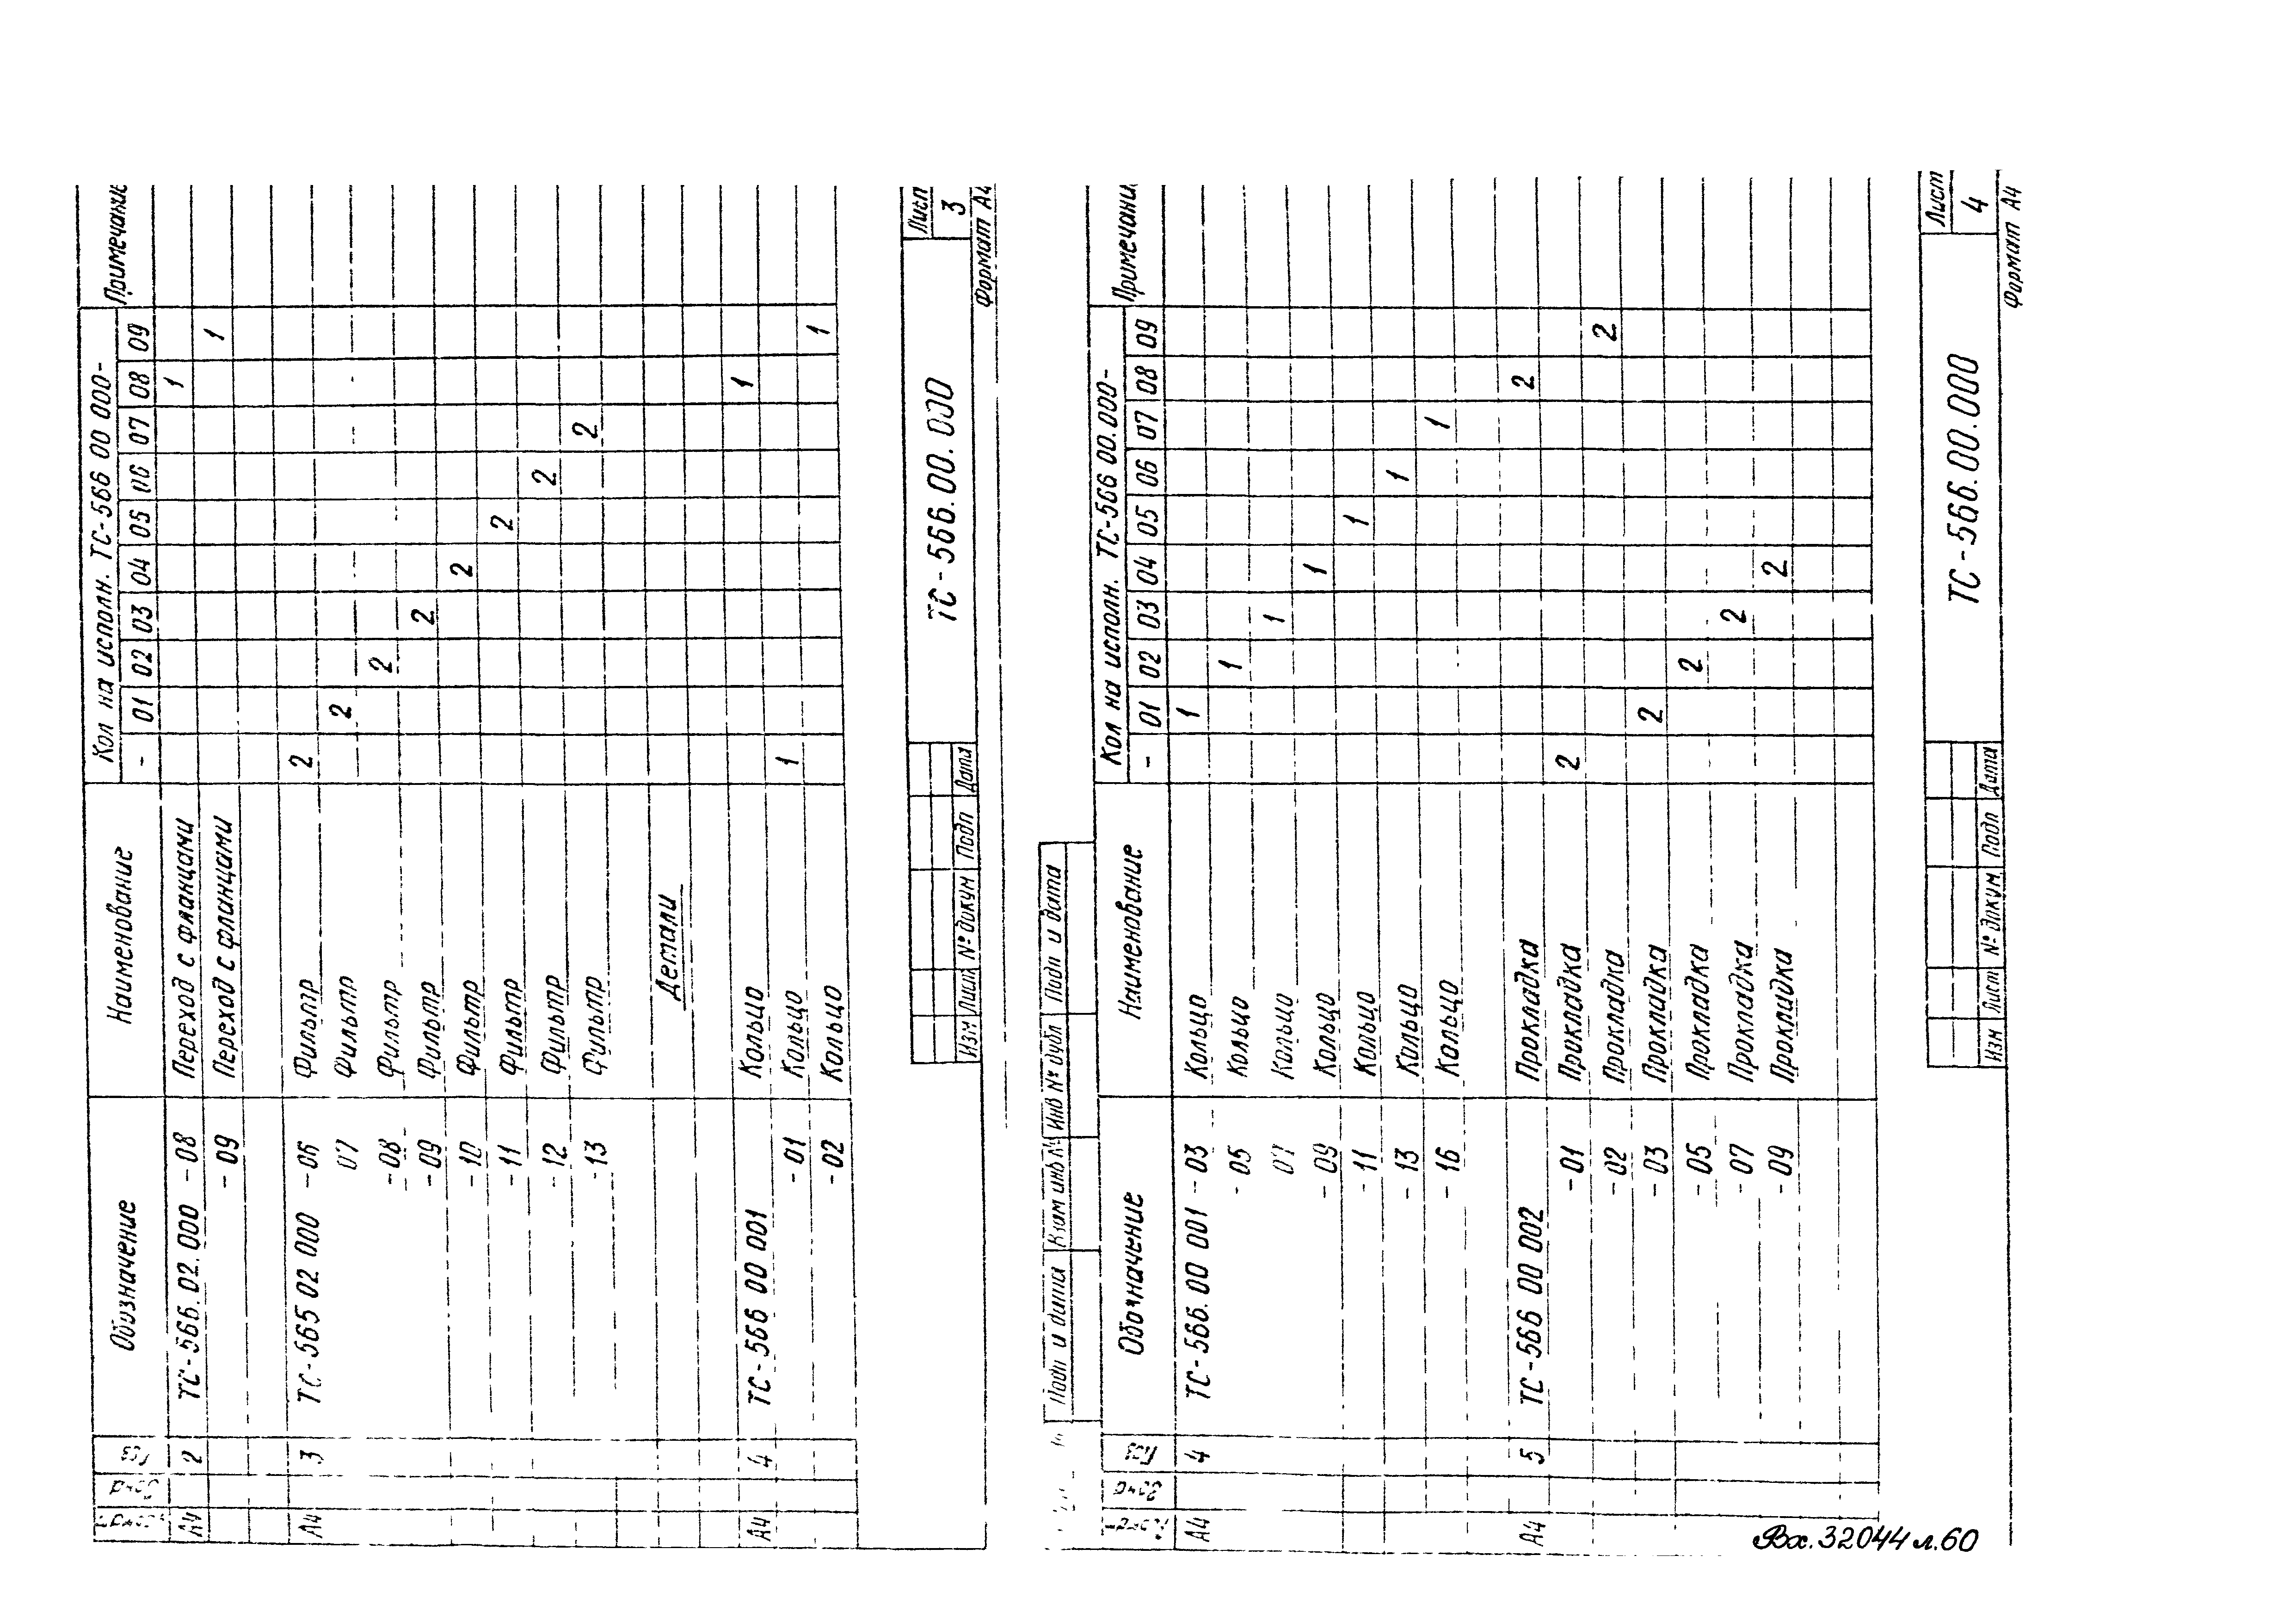 Обозначение Наименование Кол на исполн. ТС-566 00 000- Примечание
- 01 02 03 04 05 06 07 08 09
А4 2 ТС-566.02.000 -08 Переход с фланцами 1
-09 Переход с фланцами 1
А4 3 ТС-565 02 000 -06 Фильтр 2
07 Фильтр 2
-08 Фильтр 2
-09 Фильтр 2
-10 Фильтр 2
-11 Фильтр 2
-12 Фильтр 2
-13 Фильтр 2
Детали
А4 4 ТС-566 00 001 Кольцо 1
-01 Кольцо 1
-02 Кольцо 1
Изм Лист № докум Подп Дата
ТС-566.00.000
Лист
3
Формат А4
Подп и дата Взам инв № Инв № дубл Подп и дата
Поз Обозначение Наименование Кол на исполн. ТС-566 00.000- Примечани
- 01 02 03 04 05 06 07 08 09
А4 4 ТС-566.00 001 -03 Кольцо 1
-05 Кольцо 1
07 Кольцо 1
-09 Кольцо 1
-11 Кольцо 1
-13 Кольцо 1
-16 Кольцо 1
А4 5 ТС-566 00 002 Прокладка 2
-01 Прокладка 2
-02 Прокладка 2
-03 Прокладка 2
-05 Прокладка 2
-07 Прокладка 2
-09 Прокладка 2
Изм Лист № докум. Подп Дата
ТС-566.00.000
Лист
4
Формат А4
Вх. 32044 л.60